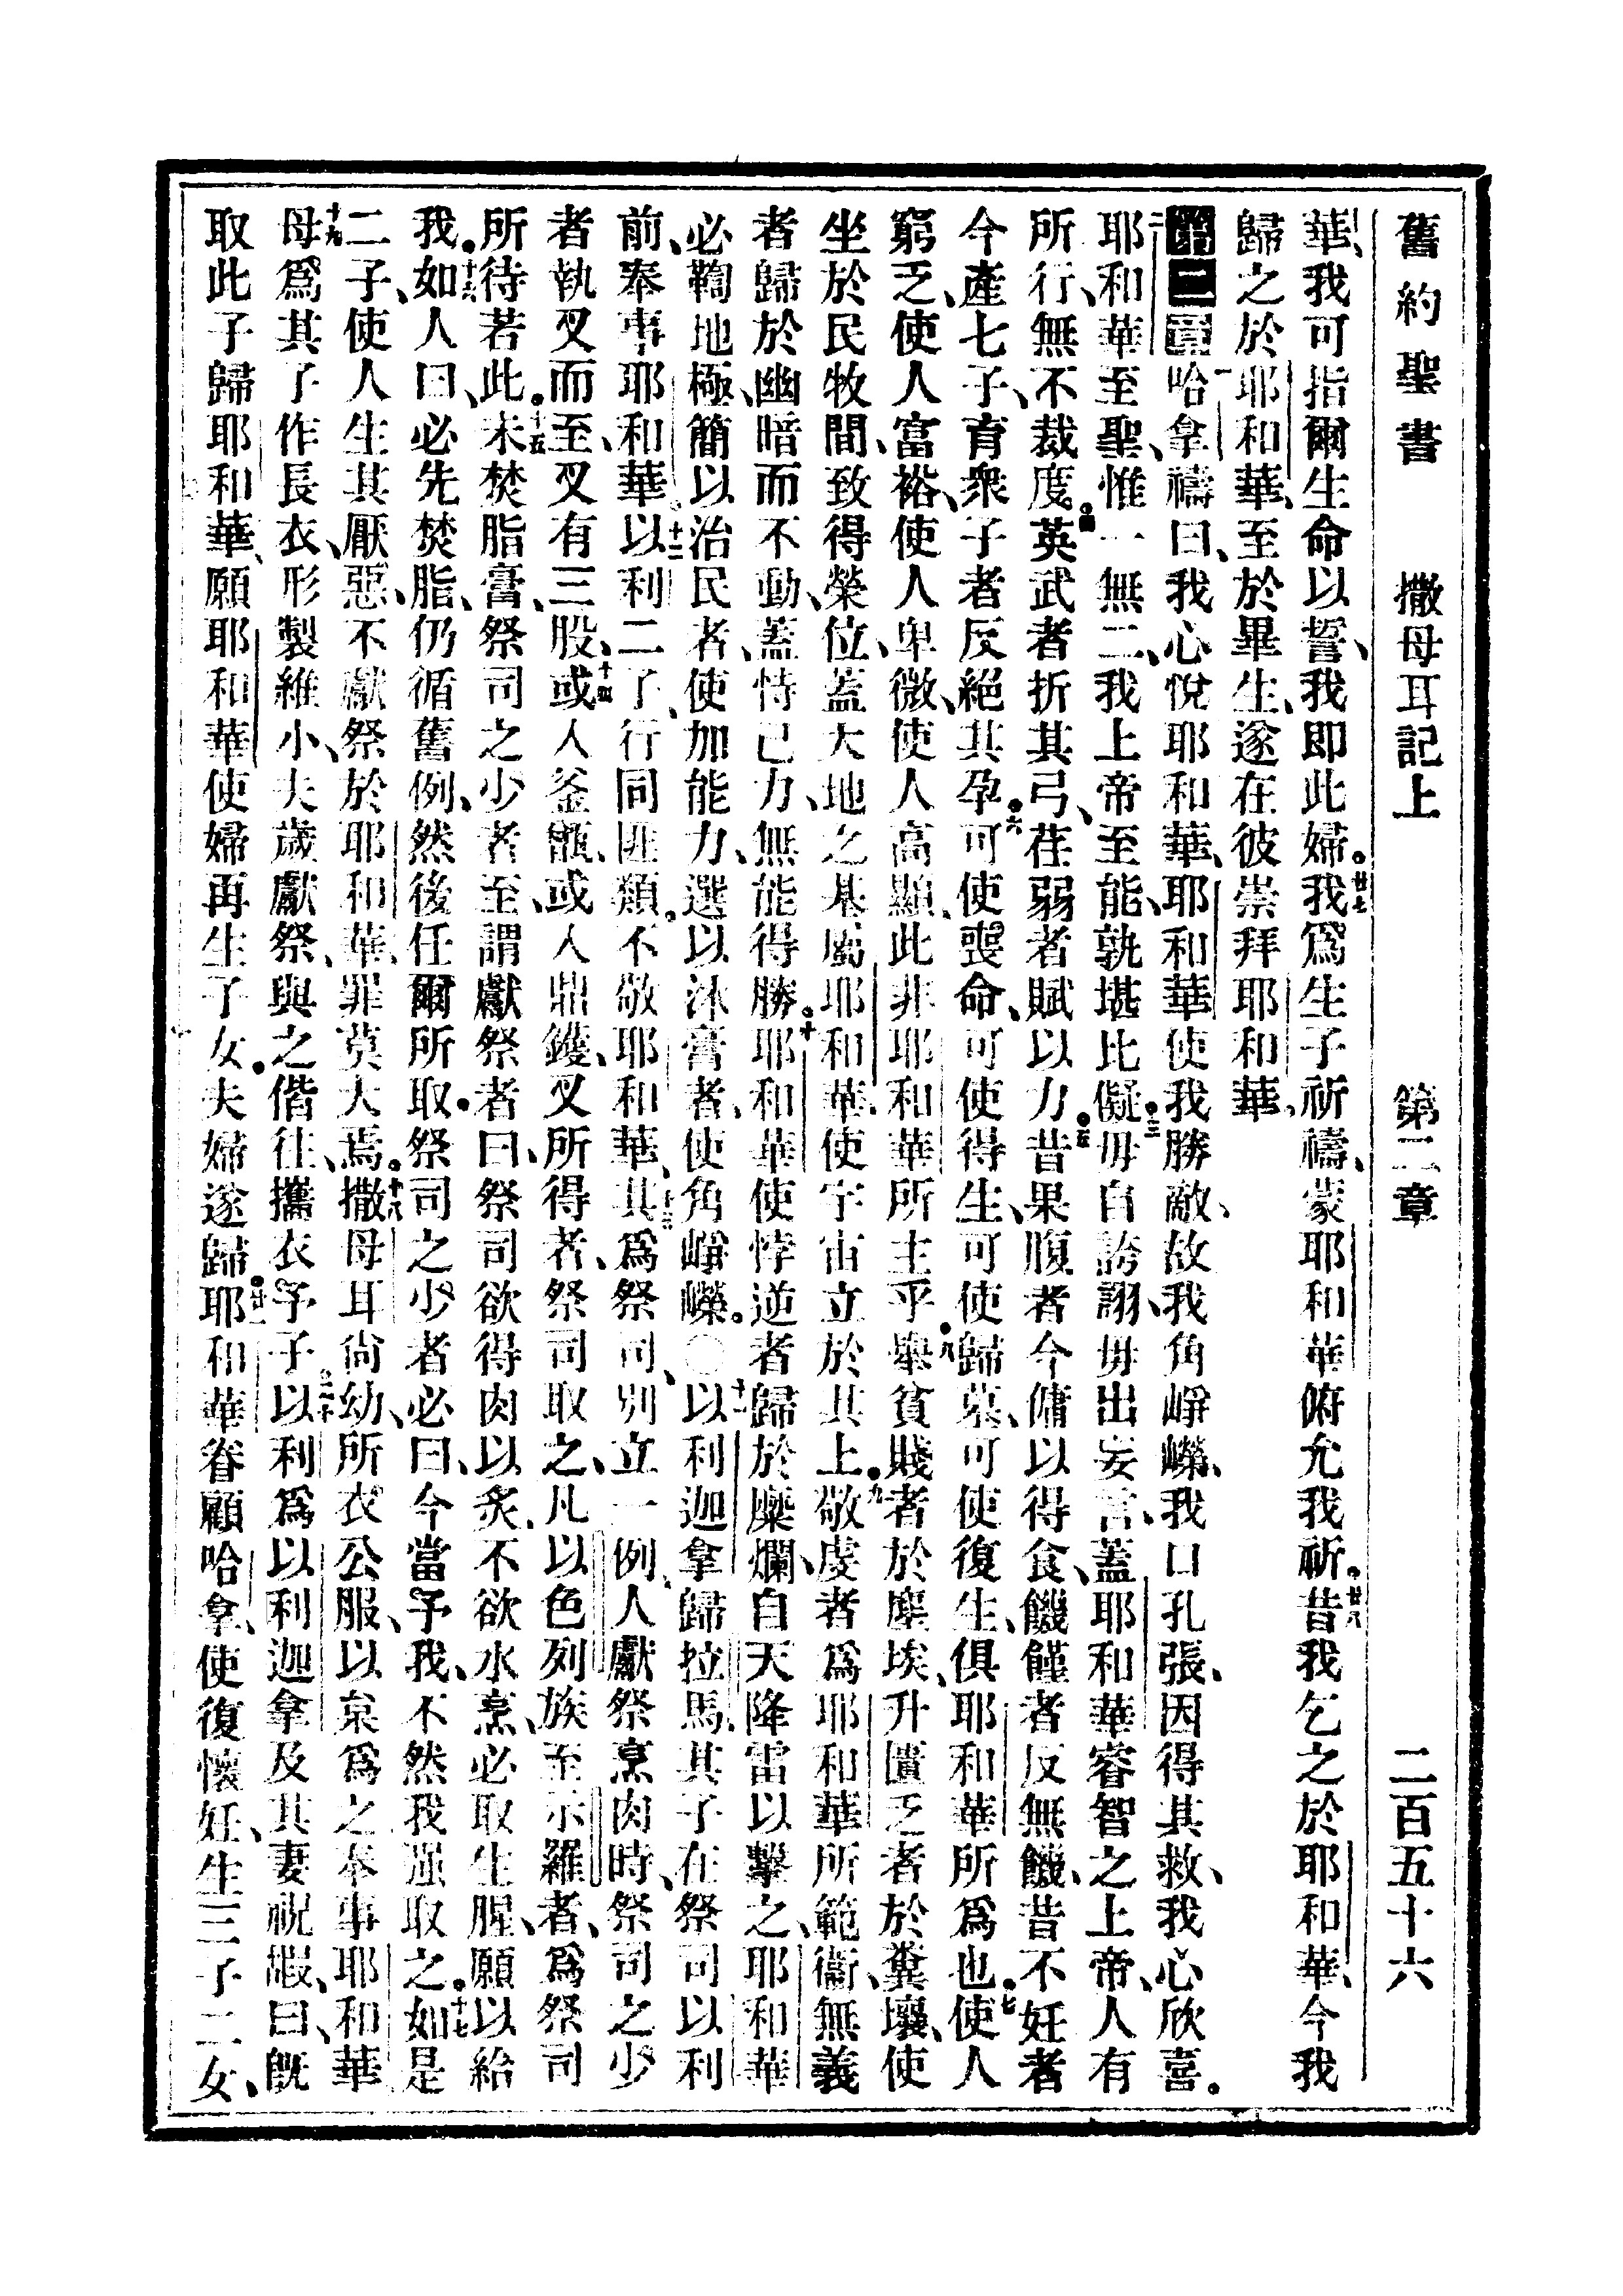 舊約聖書 撒母耳記上 第二章 二百五十六
華、我可指爾生命以誓、我卽此婦。廿七我爲生子祈禱、蒙耶和華俯允我祈。廿八昔我乞之於耶和華、今我
歸之於耶和華、至於畢生、遂在彼崇拜耶和華、
第二章 一哈拿禱曰、我心悅耶和華、耶和華使我勝敵、故我角崢嶸、我口孔張、因得其救、我心欣喜。
二耶和華至聖、惟一無二、我上帝至能、孰堪比儗。三毋自誇詡、毋出妄言、蓋耶和華睿智之上帝、人有
所行、無不裁度。四英武者折其弓、荏弱者賦以力。五昔果腹者今傭以得食、饑饉者反無饑、昔不妊者
今產七子、育衆子者反絕其孕。六可使喪命、可使得生、可使歸墓、可使復生、俱耶和華所爲也。七使人
窮乏、使人富裕、使人卑微、使人高顯、此非耶和華所主乎。八舉貧賤者於塵埃、升匱乏者於糞壤、使
坐於民牧間、致得榮位、蓋大地之基屬耶和華、使宇宙立於其上。九敬虔者爲耶和華所範衞、無義
者歸於幽暗而不動、蓋恃己力、無能得勝。十耶和華使悖逆者歸於糜爛、自天降雷以擊之、耶和華
必鞫地極、簡以治民者、使加能力、選以沐膏者、使角崢嶸。〇十一以利迦拿歸拉馬、其子在祭司以利
前、奉事耶和華。十二以利二子、行同匪類。不敬耶和華、十三其爲祭司、別立一例、人獻祭烹肉時、祭司之少
者執叉而至、叉有三股、十四或入釜甑、或入鼎鑊、叉所得者、祭司取之、凡以色列族至示羅者、爲祭司
所待若此。十五未焚脂膏、祭司之少者至、謂獻祭者曰、祭司欲得肉以炙、不欲水烹、必取生腥、願以給
我。十六如人曰、必先焚脂、仍循舊例、然後任爾所取。祭司之少者必曰、今當予我、不然我强取之。十七如是
二子、使人生其厭惡、不獻祭於耶和華、罪莫大焉。十八撒母耳尙幼、所衣公服、以枲爲之、奉事耶和華、
十九母爲其子作長衣、形製維小、夫歲獻祭、與之偕往、攜衣予子、二十以利爲以利迦拿及其妻祝嘏、曰、旣
取此子歸耶和華、願耶和華使婦再生子女。夫婦遂歸。廿一耶和華眷顧哈拿、使復懷妊、生三子二女、